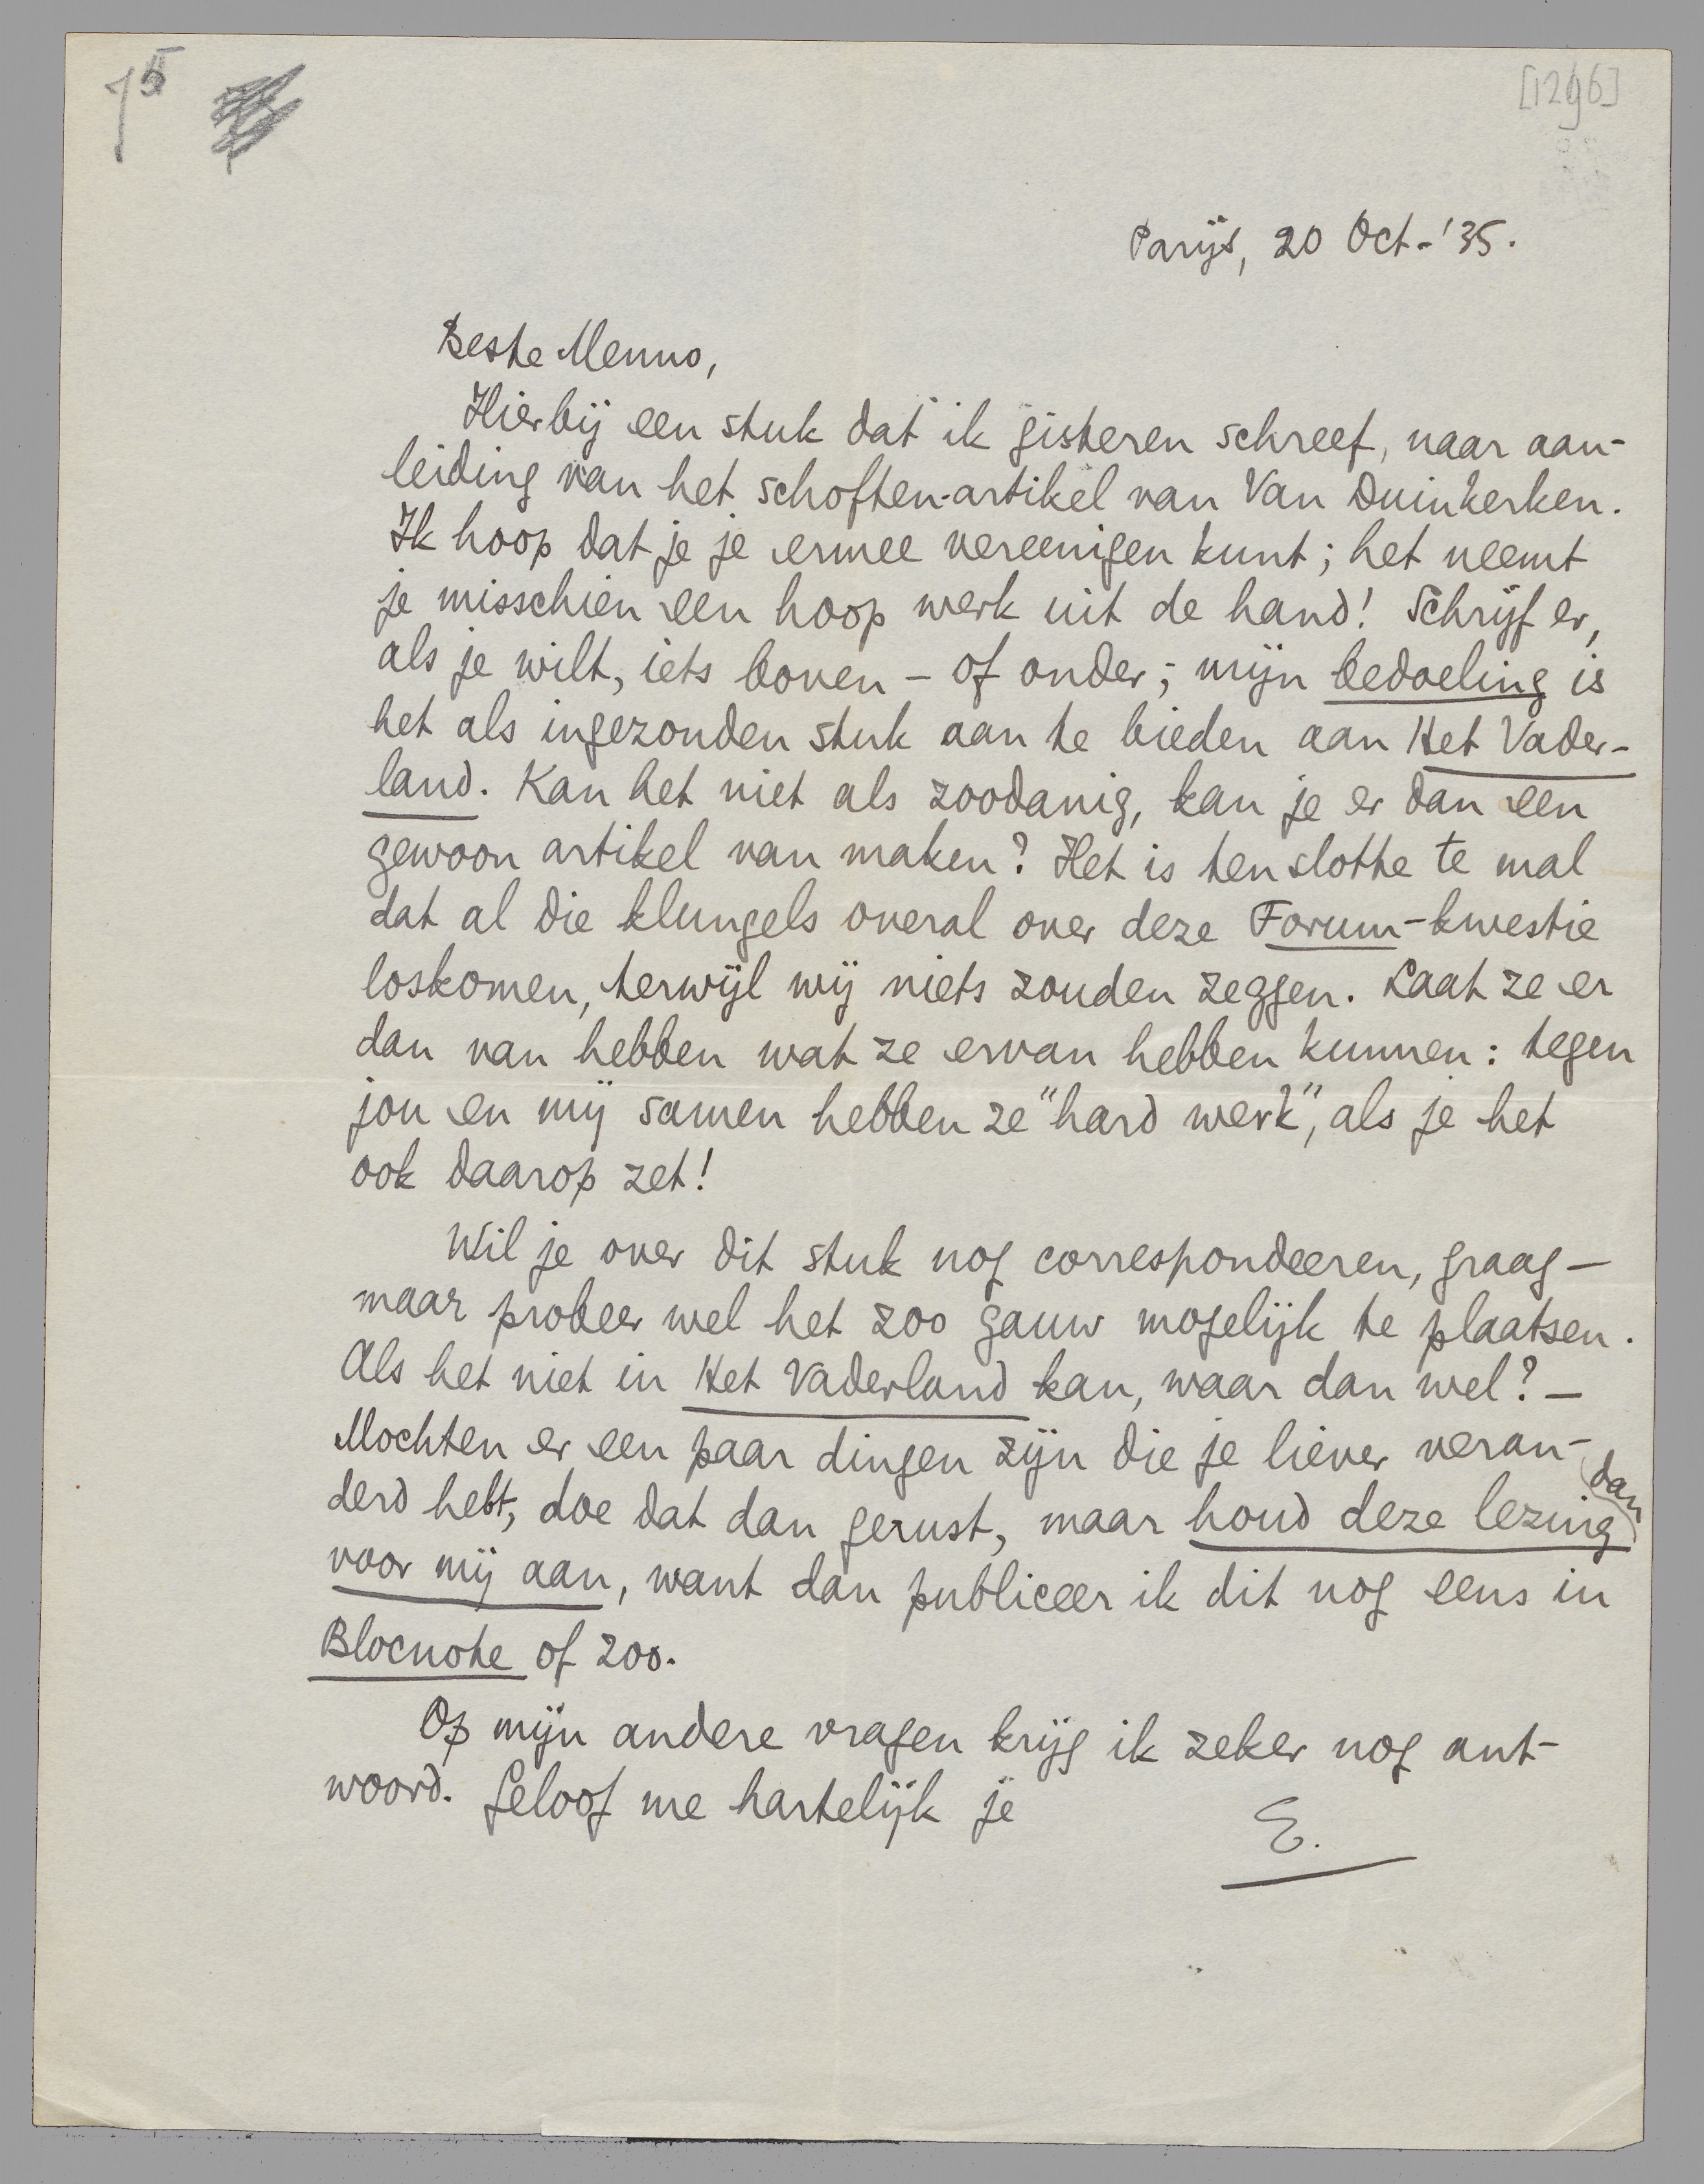 15
[1296]
Parijs, 20 Oct-'35.
Beste Menno,
Hierbij een stuk dat ik gisteren schreef, naar aan-
leiding van het schoften-artikel van Van Duinkerken.
Ik hoop dat je je ermee vereenigen kunt; het neemt
je misschien een hoop werk uit de hand! Schrijf er,
als je wilt, iets boven - of onder; mijn bedoeling is
het als ingezonden stuk aan te bieden aan Het Vader-
land. Kan het niet als zoodanig, kan je er dan een
gewoon artikel van maken? Het is tenslotte te mal
dat al die klungels overal over deze Forum-kwestie
loskomen, terwijl wij niets zouden zeggen. Laat ze er
dan van hebben wat ze ervan hebben kunnen: tegen
jou en mij samen hebben ze "hard werk", als je het
ook daarop zet!
Wil je over dit stuk nog correspondeeren, graag —
maar probeer wel het zoo gauw mogelijk te plaatsen.
Als het niet in Het Vaderland kan, waar dan wel? —
Mochten er een paar dingen zijn die je liever veran-
derd hebt, doe dat dan gerust, maar houd deze lezing dan
voor mij aan, want dan publiceer ik dit nog eens in
Blocnote of zoo.
Op mijn andere vragen krijg ik zeker nog ant-
woord. Geloof me hartelijk je
E.